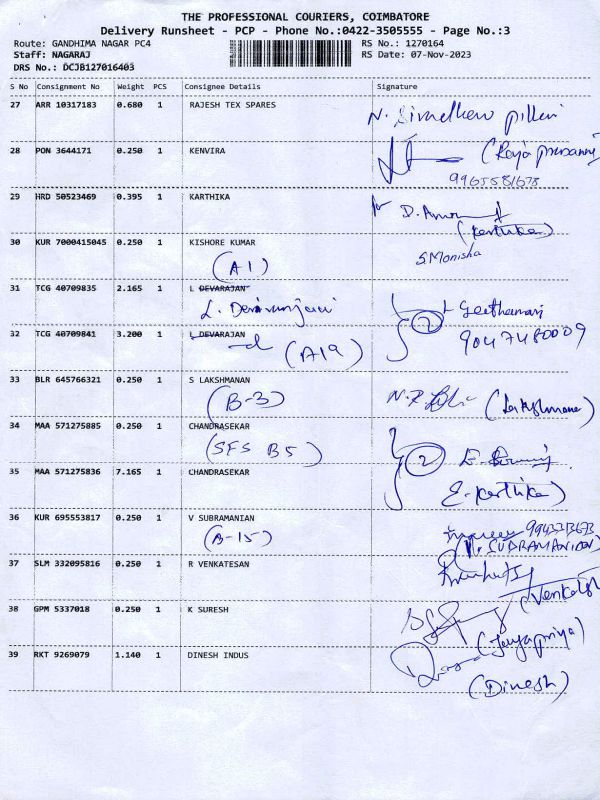 THE PROFESSIONAL COURIERS, COIMBATORE
Delivery Runsheet - PCP - Phone No.:0422-3505555 - Page No.:3
Route: GANDHIMA NAGAR PC4 RS No.: 1270164
Staff: NAGARAJ RS Date: 07-Nov-2023
DRS No.: DCJB127016403
S No Consignment No Weight PCS Consignee Details Signature
27 ARR 10317183 0.680 1 RAJESH TEX SPARES
28 PON 3644171 0.250 1 KENVIRA
9965581678
29 HRD 50523469 0.395 1 KARTHIKA
(Karthika)
30 KUR 7000415045 0.250 1 KISHORE KUMAR S.Monisha
(A1)
31 TCG 40709835 2.165 1 L DEVARAJAN
2 9047480009
32 TCG 40709841 3.200 1 L DEVARAJAN
(A19)
33 BLR 645766321 0.250 1 S LAKSHMANAN
(B-3)
34 MAA 571275885 0.250 1 CHANDRASEKAR
(SFS B5) 2
35 MAA 571275836 7.165 1 CHANDRASEKAR
E. Karthika)
36 KUR 695553817 0.250 1 V SUBRAMANIAN
(B-15)
37 SLM 332095816 0.250 1 R VENKATESAN
38 GPM 5337018 0.250 1 K SURESH
(Jayapriya)
39 RKT 9269079 1.140 1 DINESH INDUS
(Dinesh)